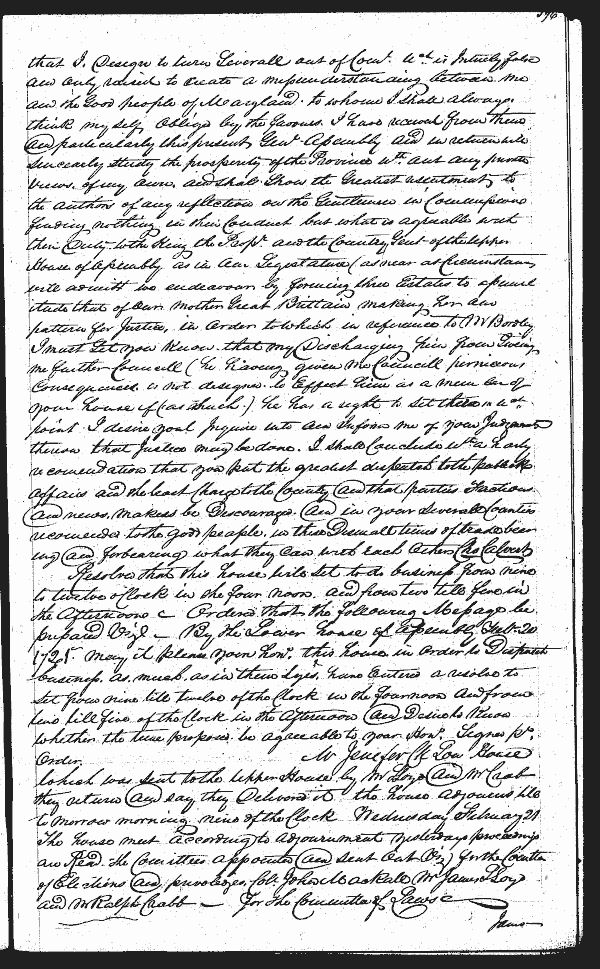 that I Designe to turn Severall out of Com.ⁿ wᶜʰ is Intirely false
and only raised to create a missunderstanding between me
and the Good people of Maryland to whome I shall always
think my self Obliged by the favours I have receved from them
and particularly this present Genˡ Assembly and in return will
sincearly study the prosperity of the Province wᵗʰ out any private
views of my own and shall show the Greatest resentment to
the authors of any reflection on the Gentlemen in
finding nothing in their Conduct but what is agreeable with
their Duty to the King the Propʳ and the Country Gentˡ of the upper
House of Assembly as in our Legislature (as near as Circumstances
will admitt we endeavour by forming three Estates to
itude that of Our mother Great Brittain making her our
pattern for Justice, in Order to which in reference to Mʳ Bordley
I must Let you Know that my Discharging him from Giving
me further Councill (he having given me Councill pernicious
Consequences is not designed to Effect him as a member of
your house if (as such) he has a right to sett there in wᶜʰ
point I desire you'l Inquire into and Inform me of your Judgment
thereon that Justice may be done. I shall Conclude wᵗʰ a hearty
recomendation that you put the greatest dispatch to the publick
affairs and the least Charge to the County and that parties Factions
and news makers be Discouraged And in your severall Counties
recomended to the good people, in these Dismall times of trade bear
ing and forbearing what they can with each other Chs Calvert
Resolved that this house will set to do business from nine
to twelve oClock in the four noon and from two till five in
the Afternoone Ordered that the following Message be
prepared Vizᵗ By the Lower house of Assembly Febʳ 20
1725. May it please your Honʳ this house in Order to Dispatch
business as much as in them Lyes have Entered a resolve to
set from nine till twelve of the Clock in the fournoon and from
two till five of the Clock in the Afternoon and Desire to Know
whether the time proposed be agreeable to your Honʳ Signed pʳ
Order M Jenefer Cˡ Low House
which was sent to the upper House by Mʳ Loyd and Mʳ Crab
they return and say they Delivered it the house adjourns till
to morrow morning nine of the Clock Wednesday February 21
The house meet according to adjournment yesterdays proceedings
are Read. the Comittees appointed and sent Out Vizᵗ for the Comittee
of Elections and priviledges Colˡ John Mackall Mʳ James Lloyd
and Mʳ Ralph Crabb For the Committee of Laws
James